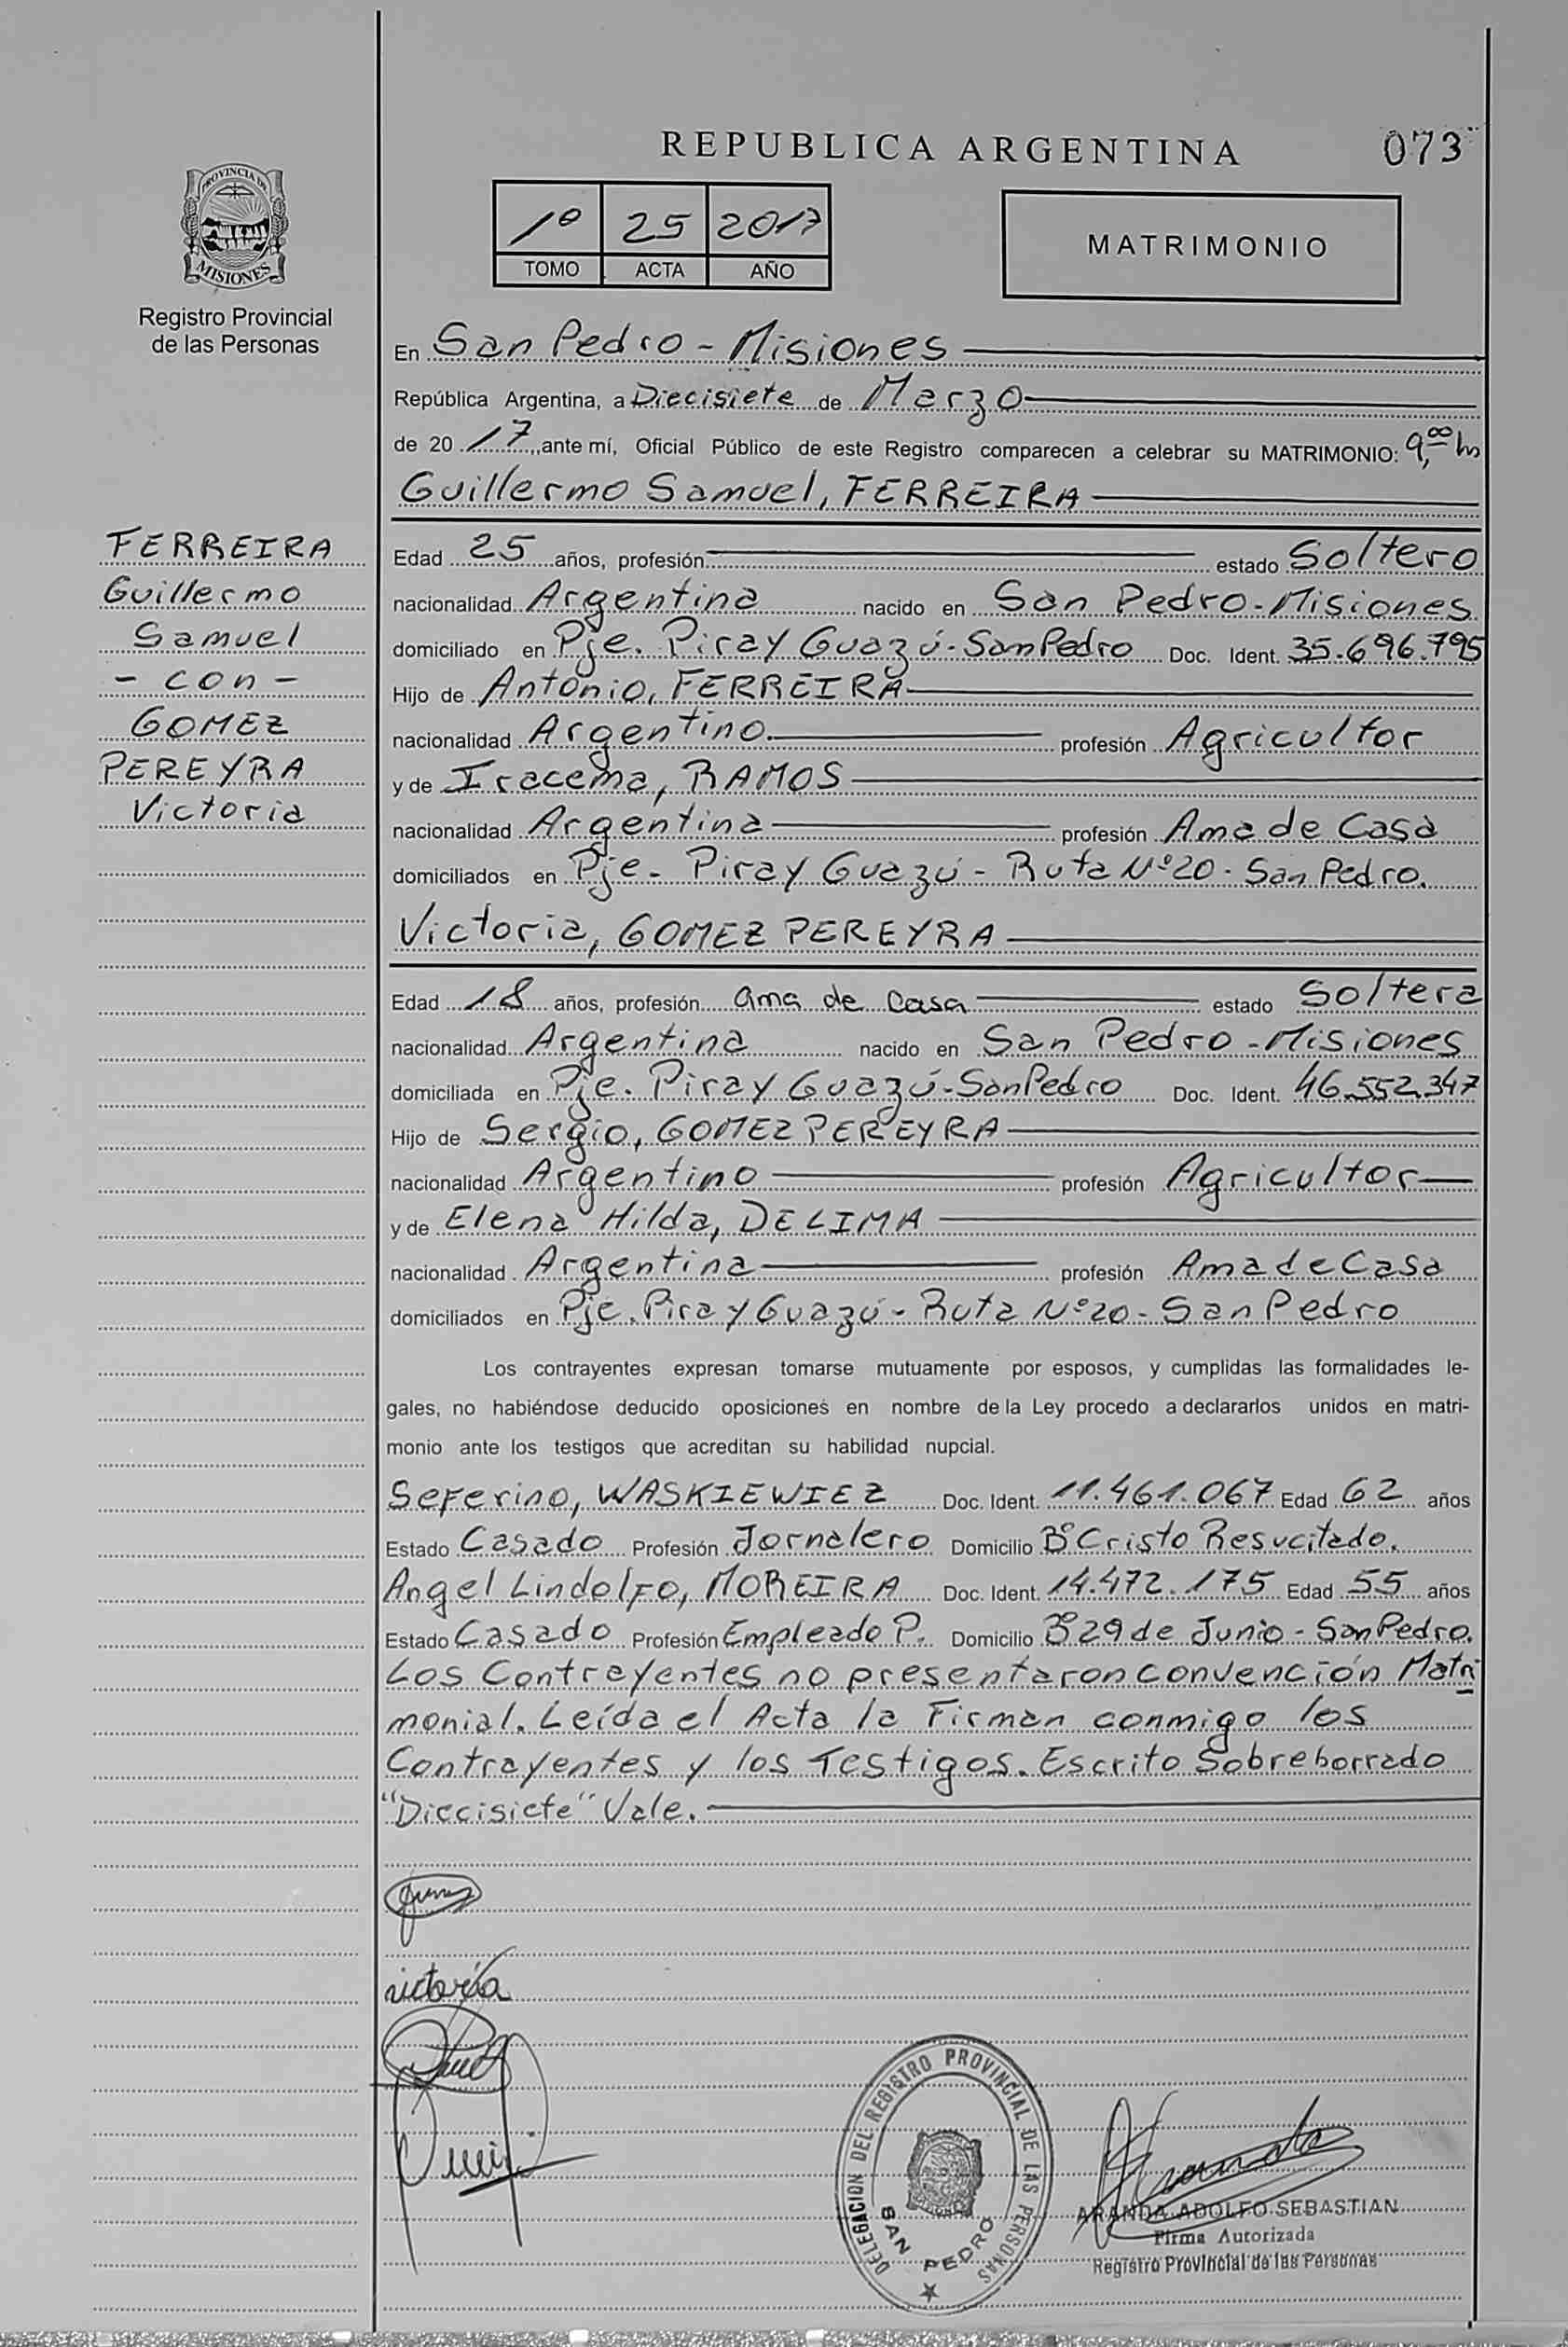 REPUBLICA ARGENTINA
073
PROVINCIA DE
MISIONES
Registro Provincial
de las Personas
1º 25 2017
TOMO ACTA AÑO
MATRIMONIO
En San Pedro - Misiones
República Argentina, a Diecisiete de Marzo
de 20 17, ante mí, Oficial Público de este Registro comparecen a celebrar su MATRIMONIO: 9,00 hs
Guillermo Samuel, FERREIRA
FERREIRA
Guillermo
Samuel
- con -
GOMEZ
PEREYRA
Victoria
Edad 25 años, profesión estado Soltero
nacionalidad Argentina nacido en San Pedro-Misiones
domiciliado en Pje. Piray Guazú-San Pedro Doc. Ident. 35.696.795
Hijo de Antonio, FERREIRA
nacionalidad Argentino profesión Agricultor
y de Iracema, RAMOS
nacionalidad Argentina profesión Ama de Casa
domiciliados en Pje- Piray Guazú - Ruta Nº20 - San Pedro.
Victoria, GOMEZ PEREYRA
Edad 18 años, profesión ama de casa estado Soltera
nacionalidad Argentina nacido en San Pedro - Misiones
domiciliada en Pje. Piray Guazú-San Pedro Doc. Ident. 46.552.347
Hijo de Sergio, GOMEZ PEREYRA
nacionalidad Argentino profesión Agricultor
y de Elena Hilda, DELIMA
nacionalidad Argentina profesión Ama de Casa
domiciliados en Pje. Piray Guazú - Ruta Nº20 - San Pedro
Los contrayentes expresan tomarse mutuamente por esposos, y cumplidas las formalidades le-
gales, no habiéndose deducido oposiciones en nombre de la Ley procedo a declararlos unidos en matri-
monio ante los testigos que acreditan su habilidad nupcial.
Seferino, WASKIEWIEZ Doc. Ident. 11.461.067 Edad 62 años
Estado Casado Profesión Jornalero Domicilio Bº Cristo Resucitado.
Angel Lindolfo, MOREIRA Doc. Ident. 14.472.175 Edad 55 años
Estado Casado Profesión Empleado P. Domicilio Bº 29 de Junio - San Pedro.
Los Contrayentes no presentaron convención Matri
monial. Leída el Acta la Firman conmigo los
Contrayentes y los Testigos. Escrito Sobreborrado
"Diecisiete" Vale.
victoria
DELEGACION DEL REGISTRO PROVINCIAL DE LAS PERSONAS
SAN PEDRO
ARANDA ADOLFO SEBASTIAN
Firma Autorizada
Registro Provincial de las Personas